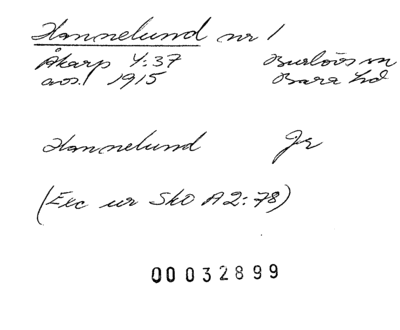 Hannelund nr 1
Åkarp 4:37 Burlövs sn
avs. 1915 Bara hd
Hannelund Je
(Exc ur SkO A2:78)
00032899